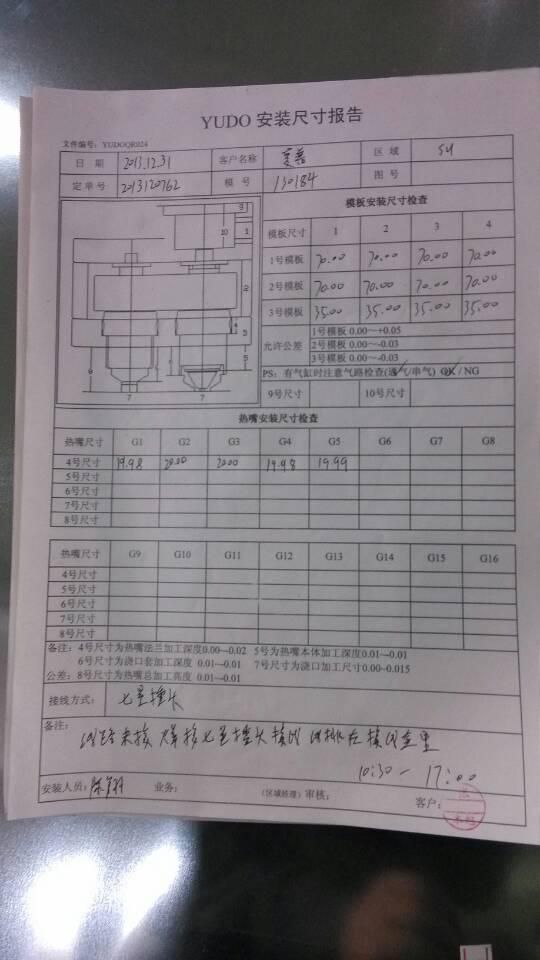 YUDO 安装尺寸报告
文件编号：YUDOQR024
日 期 2013.12.31 客户名称 区 域 SU
定单号 2013120762 模 号 130184 图 号
模板安装尺寸检查
模板尺寸 1 2 3 4
1号模板 70.00 70.00 70.00 70.00
2号模板 70.00 70.00 70.00 70.00
3号模板 35.00 35.00 35.00 35.00
允许公差
1号模板 0.00～+0.05
2号模板 0.00～-0.03
3号模板 0.00～-0.03
PS：有气缸时注意气路检查(通气/串气) OK / NG
9号尺寸 10号尺寸
9
10
1
2
4
3
5
6
8
7
7
热嘴安装尺寸检查
热嘴尺寸 G1 G2 G3 G4 G5 G6 G7 G8
4号尺寸 19.98 20.00 20.00 19.98 19.99
5号尺寸
6号尺寸
7号尺寸
8号尺寸
热嘴尺寸 G9 G10 G11 G12 G13 G14 G15 G16
4号尺寸
5号尺寸
6号尺寸
7号尺寸
8号尺寸
备注：4号尺寸为热嘴法兰加工深度0.00~-0.02 5号为热嘴本体加工深度0.01~-0.01
6号尺寸为浇口套加工深度 0.01~-0.01 7号尺寸为浇口加工尺寸0.00~0.015
公差：8号尺寸为热嘴总加工高度 0.01~-0.01
接线方式：
备注：
10:30 — 17:00
安装人员： 业务： （区域经理）审核： 客户：